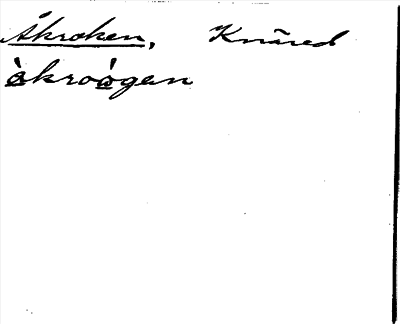 Åkroken, Knäred
åkroògen